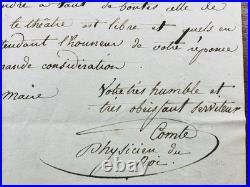 à tant de toutes celle de
le théâtre est libre et quels en
ttendant l'honneur de votre réponse
mande considération
Votre très humble et
maire
très obéissant serviteur
Comte
physicien du
Roi